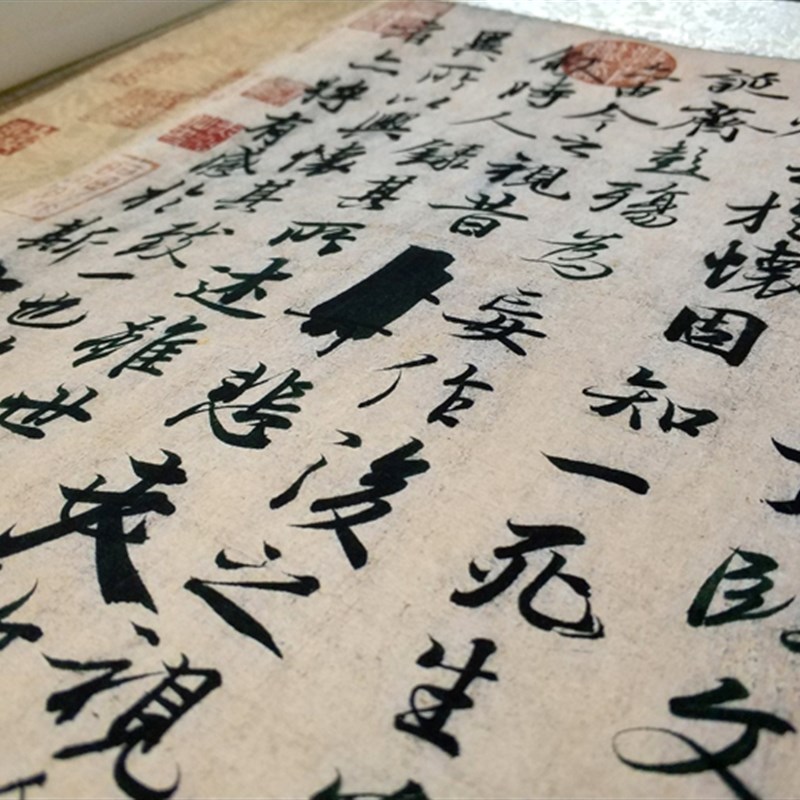 臨文
於懷固知一死生
誕齊彭殤為妄作後之視
由今之視昔悲夫
敘時人錄其所述雖世
異所以興懷其致一也
者亦將有感於斯